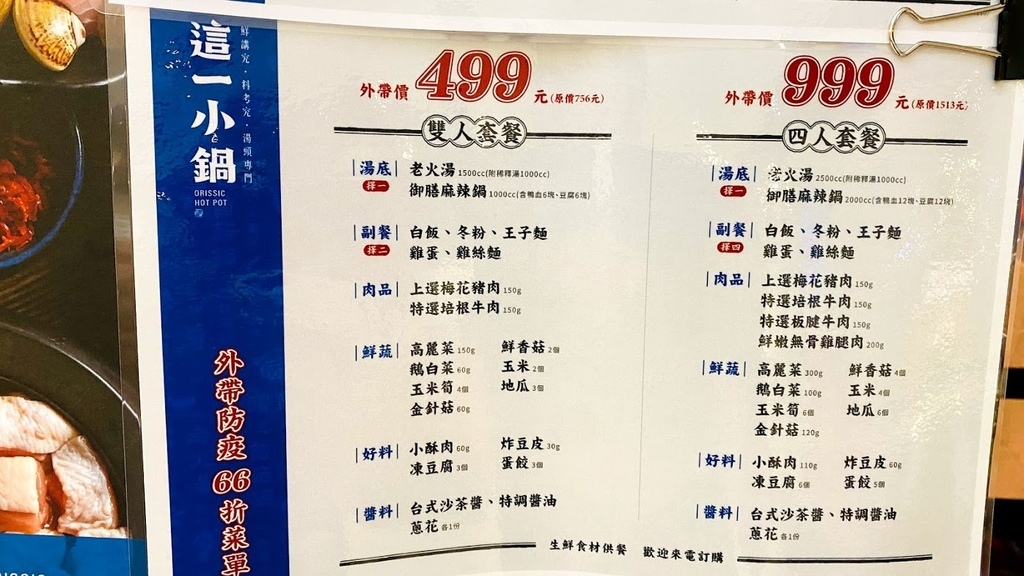 鮮講究・料考究・湯頭專門
這一小鍋
ORISSIC
HOT POT
外帶防疫66折菜單
外帶價499元(原價756元)
雙人套餐
湯底 老火湯1500cc(附稀釋湯1000cc)
擇一 御膳麻辣鍋1000cc(含鴨血6塊、豆腐6塊)
副餐 白飯、冬粉、王子麵
擇二 雞蛋、雞絲麵
肉品 上選梅花豬肉150g
特選培根牛肉150g
鮮蔬 高麗菜150g 鮮香菇2個
鵝白菜60g 玉米2個
玉米筍4個 地瓜3個
金針菇60g
好料 小酥肉60g 炸豆皮30g
凍豆腐3個 蛋餃3個
醬料 台式沙茶醬、特調醬油
蔥花各1份
外帶價999元(原價1513元)
四人套餐
湯底 老火湯2500cc(附稀釋湯1000cc)
擇一 御膳麻辣鍋2000cc(含鴨血12塊、豆腐12塊)
副餐 白飯、冬粉、王子麵
擇四 雞蛋、雞絲麵
肉品 上選梅花豬肉150g
特選培根牛肉150g
特選板腱牛肉150g
鮮嫩無骨雞腿肉200g
鮮蔬 高麗菜300g 鮮香菇4個
鵝白菜100g 玉米4個
玉米筍6個 地瓜6個
金針菇120g
好料 小酥肉110g 炸豆皮60g
凍豆腐6個 蛋餃5個
醬料 台式沙茶醬、特調醬油
蔥花各1份
生鮮食材供餐 歡迎來電訂購